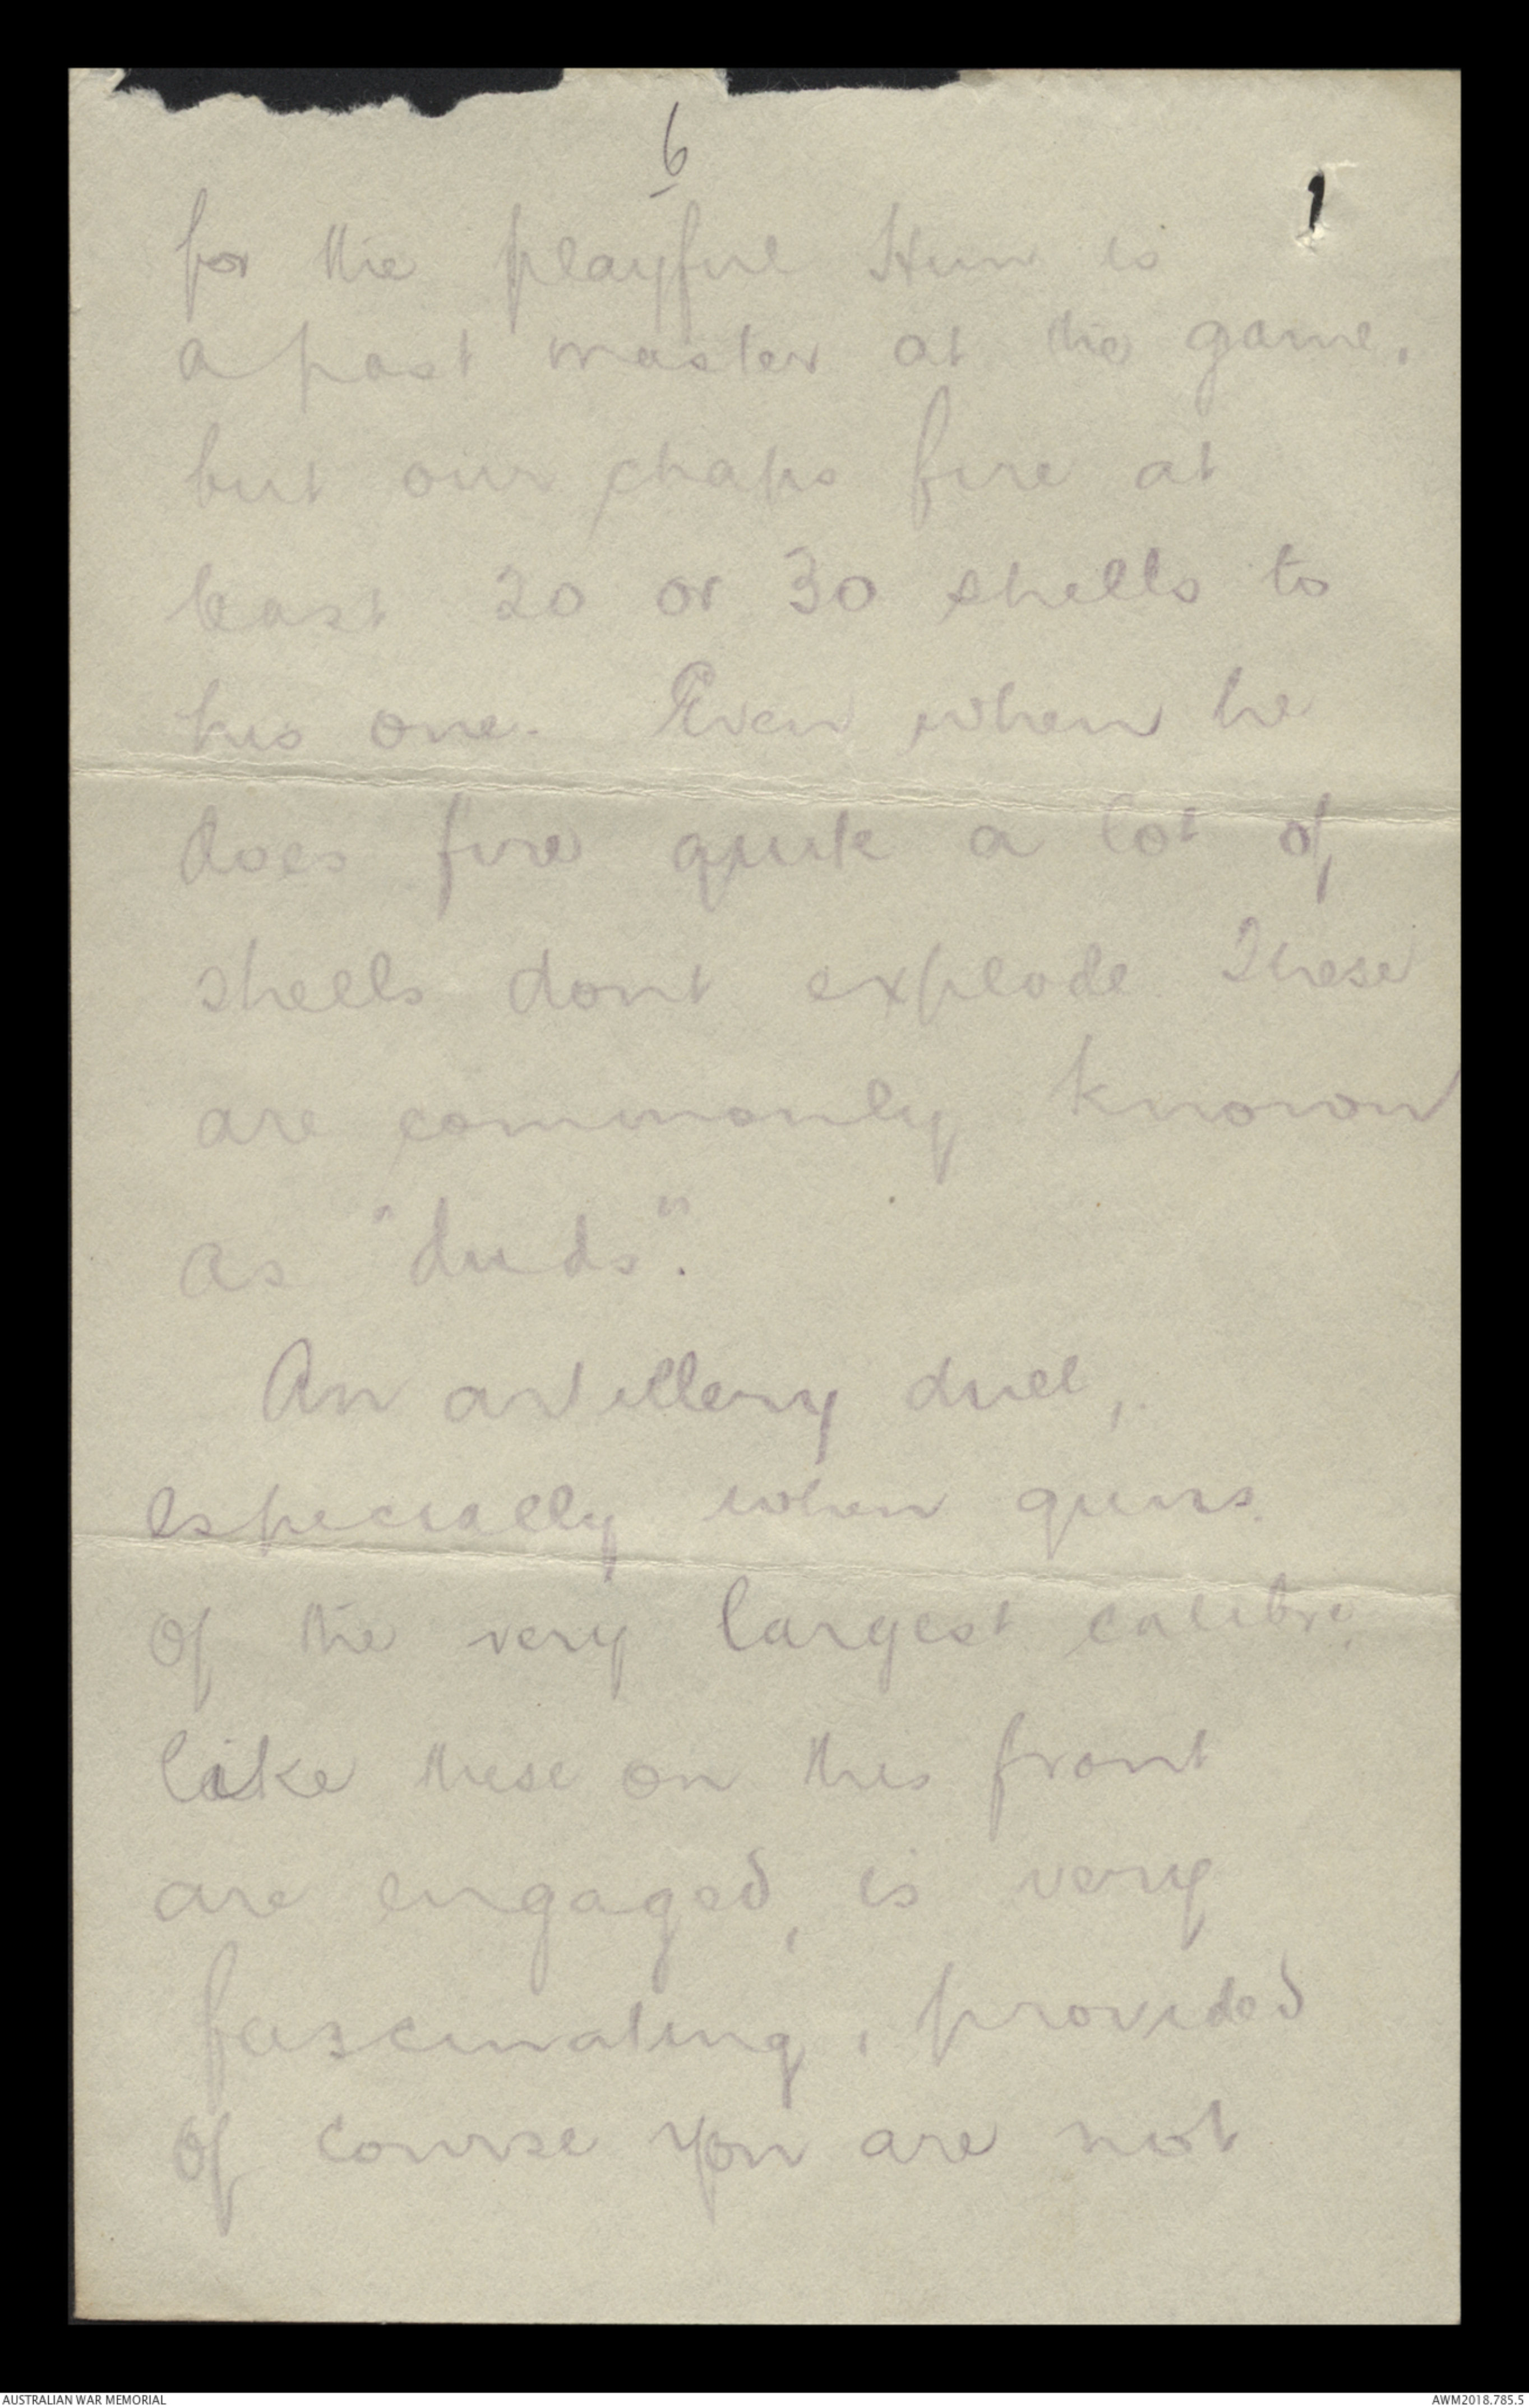 6
for the playful Hun is
a past master at the game.
but our chaps fire at
least 20 or 30 shells to
his one. Even when he
does fire quite a lot of
shells dont explode These
are commonly known
as "duds".
An artillery duel,
especially when guns
of the very largest calibre
like these on this front
are engaged, is very
fascinating, provided
of course you are not
AUSTRALIAN WAR MEMORIAL
AWM2018.785.5